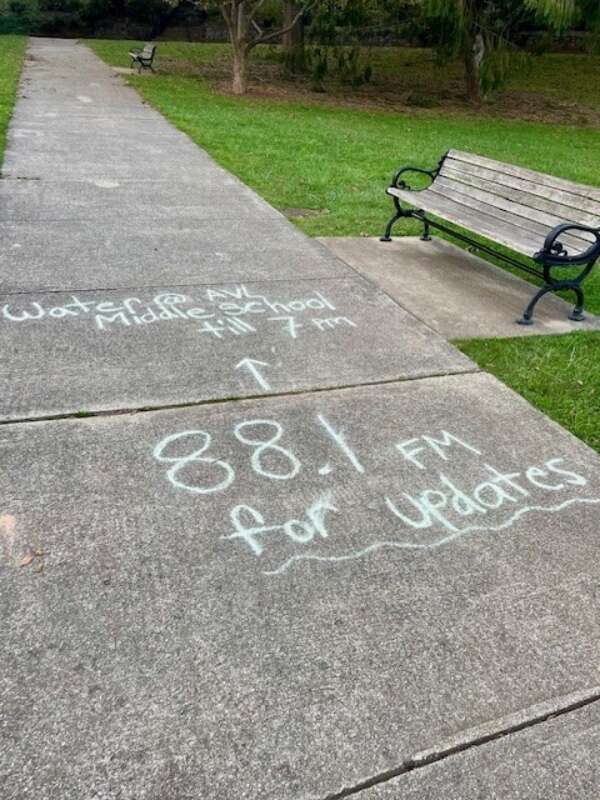 Water @ AVL
Middle School
till 7 PM
↑
88.1 FM
for updates